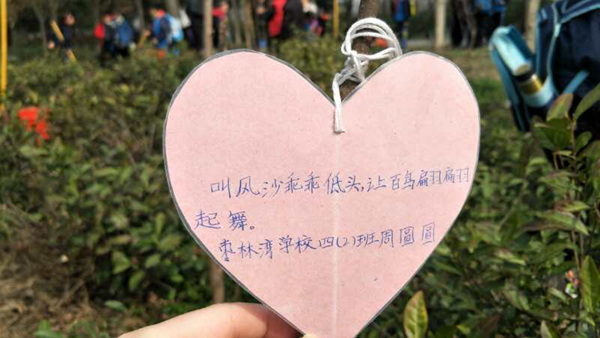 叫风沙乖乖低头,让百鸟扁羽扁羽
起舞。
枣林湾学校四(2)班周圆圆